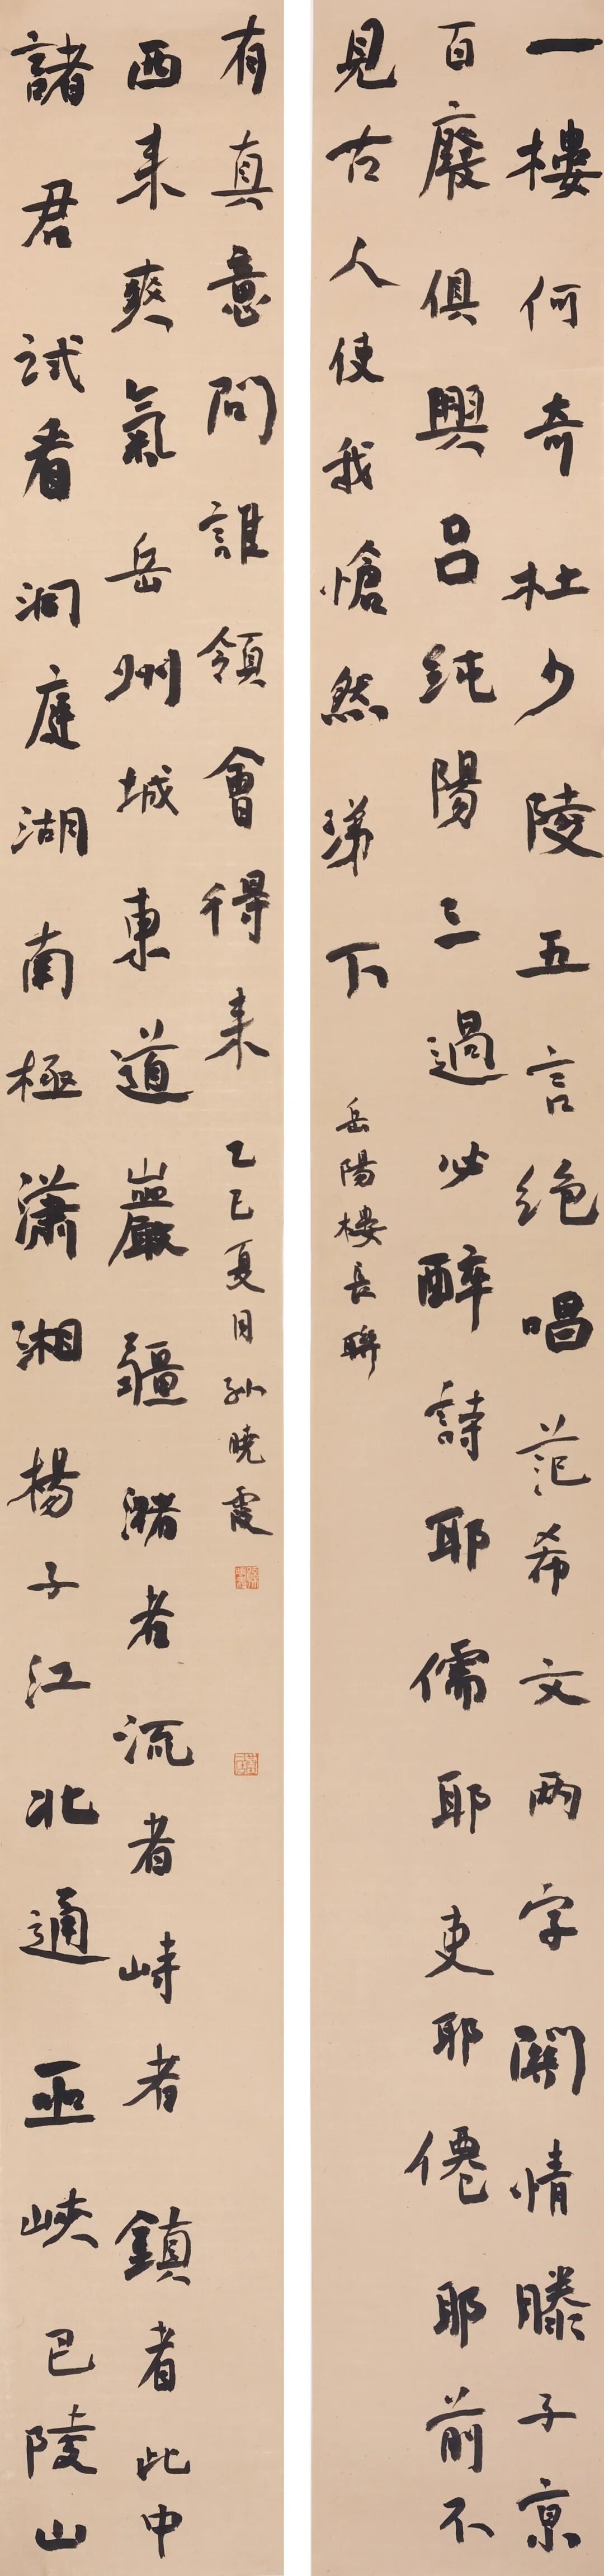 一樓何奇杜少陵五言絶唱范希文两字關情滕子京
百廢俱興呂純陽三過必醉詩耶儒耶吏耶僊耶前不
見古人使我愴然涕下
岳陽樓長聯
諸君試看洞庭湖南極瀟湘楊子江北通巫峽巴陵山
西来爽氣岳州城東道巖疆瀦者流者峙者鎮者此中
有真意問誰領會得来
乙巳夏月孫曉霞